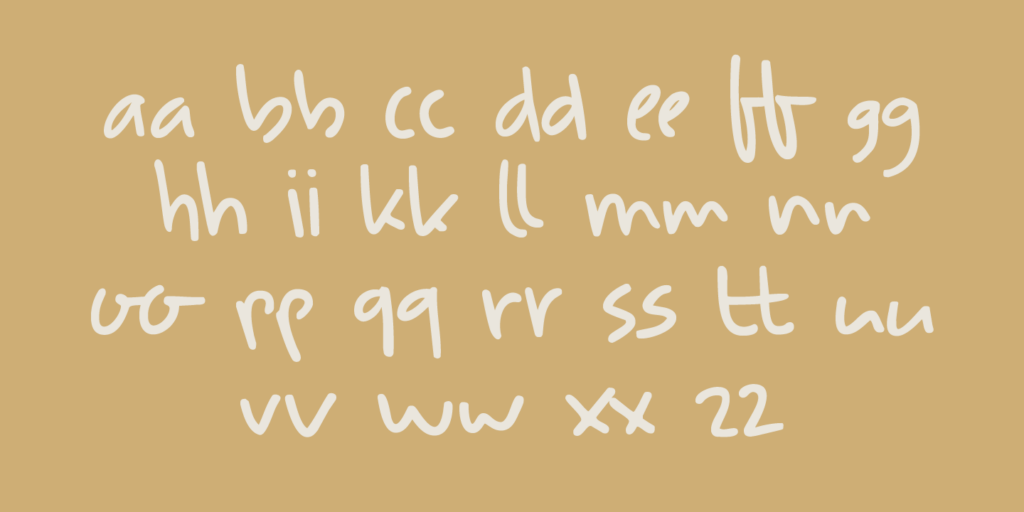 aa bb cc dd ee ff gg
hh ii kk ll mm nn
oo pp qq rr ss tt uu
vv ww xx zz